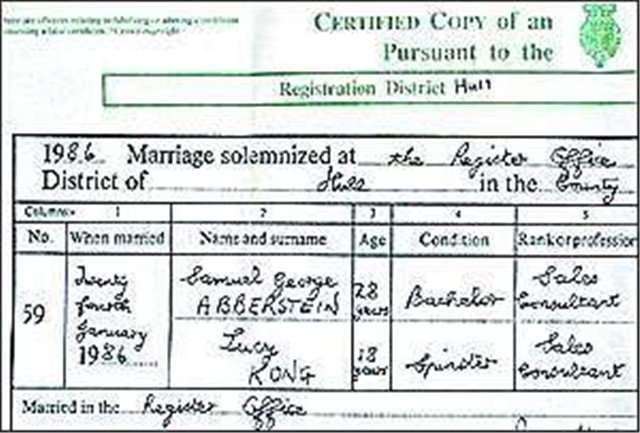 CERTIFIED COPY of an
Pursuant to the
Registration District Hull
1986 Marriage solemnized at the Register Office
District of Hull in the County
Columns:- 1 2 3 4 5
No. When married Name and surname Age Condition Rank or profession
59 Twenty fourth January 1986 Samuel George ABBERSTEIN 28 years Bachelor Sales Consultant
Lucy KONG 18 years Spinster Sales Consultant
Married in the Register Office